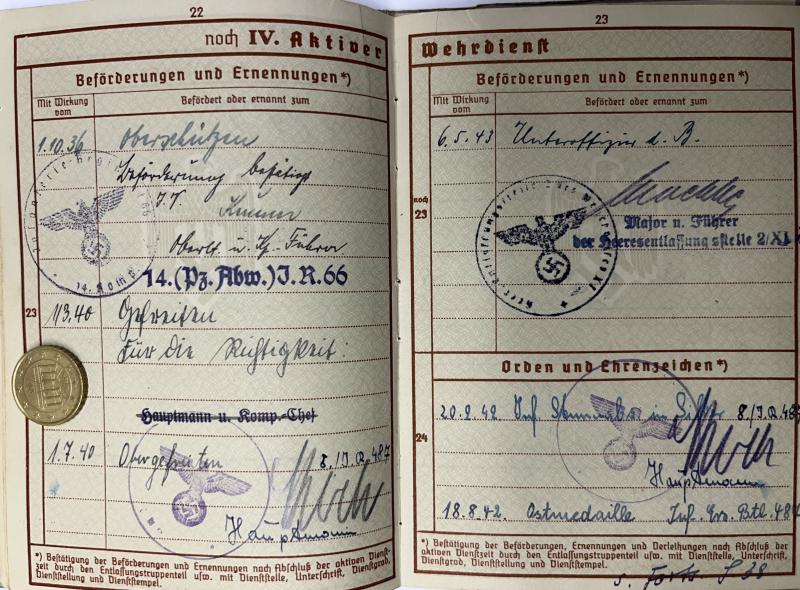 22
noch IV. Aktiver
Beförderungen und Ernennungen*)
Mit Wirkung vom
Befördert oder ernannt zum
1.10.36 Oberschützen
Beförderung bestätigt
Oberlt. u. Kp. Führer
14.(Pz. Abw.)J.R.66
23
1.3.40 Gefreiten
Für die Richtigkeit:
Hauptmann u. Komp.-Chef
1.7.40 Obergefreiten 8./I.R.487
Hauptmann
*) Bestätigung der Beförderungen und Ernennungen nach Abschluß der aktiven Dienst-
zeit durch den Entlassungstruppenteil usw. mit Dienststelle, Unterschrift, Dienstgrad,
Dienststellung und Dienststempel.
23
Wehrdienst
Beförderungen und Ernennungen*)
Mit Wirkung vom
Befördert oder ernannt zum
6.5.43 Unteroffizier d. B.
noch
23
Major u. Führer
der Heeresentlassungsstelle 2/XI
Orden und Ehrenzeichen*)
20.2.42 Inf. Sturmabz. in Silber 8./I.R.487
24
Hauptmann
18.8.42. Ostmedaille Inf. Ers. Btl. 487
*) Bestätigung der Beförderungen, Ernennungen und Verleihungen nach Abschluß der
aktiven Dienstzeit durch den Entlassungstruppenteil usw. mit Dienststelle, Unterschrift,
Dienstgrad, Dienststellung und Dienststempel.
s. Forts. S 38